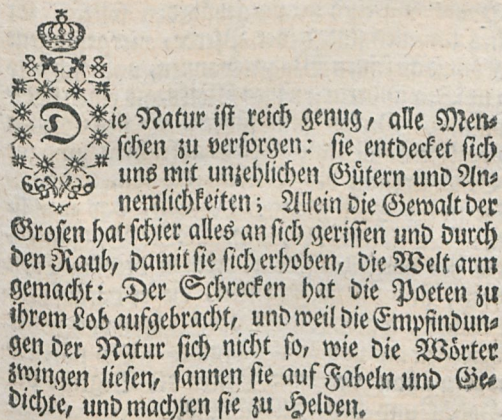 Die Natur ist reich genug, alle Men-
schen zu versorgen: sie entdecket sich
uns mit unzehlichen Gütern und An-
nemlichkeiten; Allein die Gewalt der
Grosen hat schier alles an sich gerissen und durch
den Raub, damit sie sich erhoben, die Welt arm
gemacht: Der Schrecken hat die Poeten zu
ihrem Lob aufgebracht, und weil die Empfindun-
gen der Natur sich nicht so, wie die Wörter
zwingen liesen, sannen sie auf Fabeln und Ge-
dichte, und machten sie zu Helden.